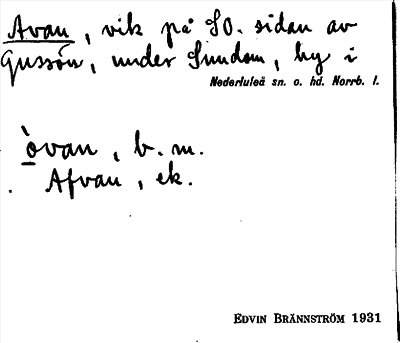 Avan, vik på SO. sidan av
Gussön, under Sundom, by i
Nederluleå sn. o. hd. Norrb. l.
òvan, b. m.
. Afvan, ek.
EDVIN BRÄNNSTRÖM 1931